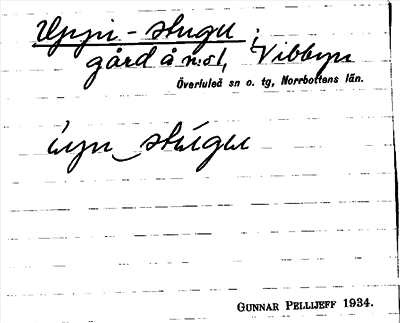 Uppi-stugu ;
gård å n:o 1, Vibbyn
Överluleå sn o. tg, Norrbottens län.
stúgu
GUNNAR PELLIJEFF 1934.